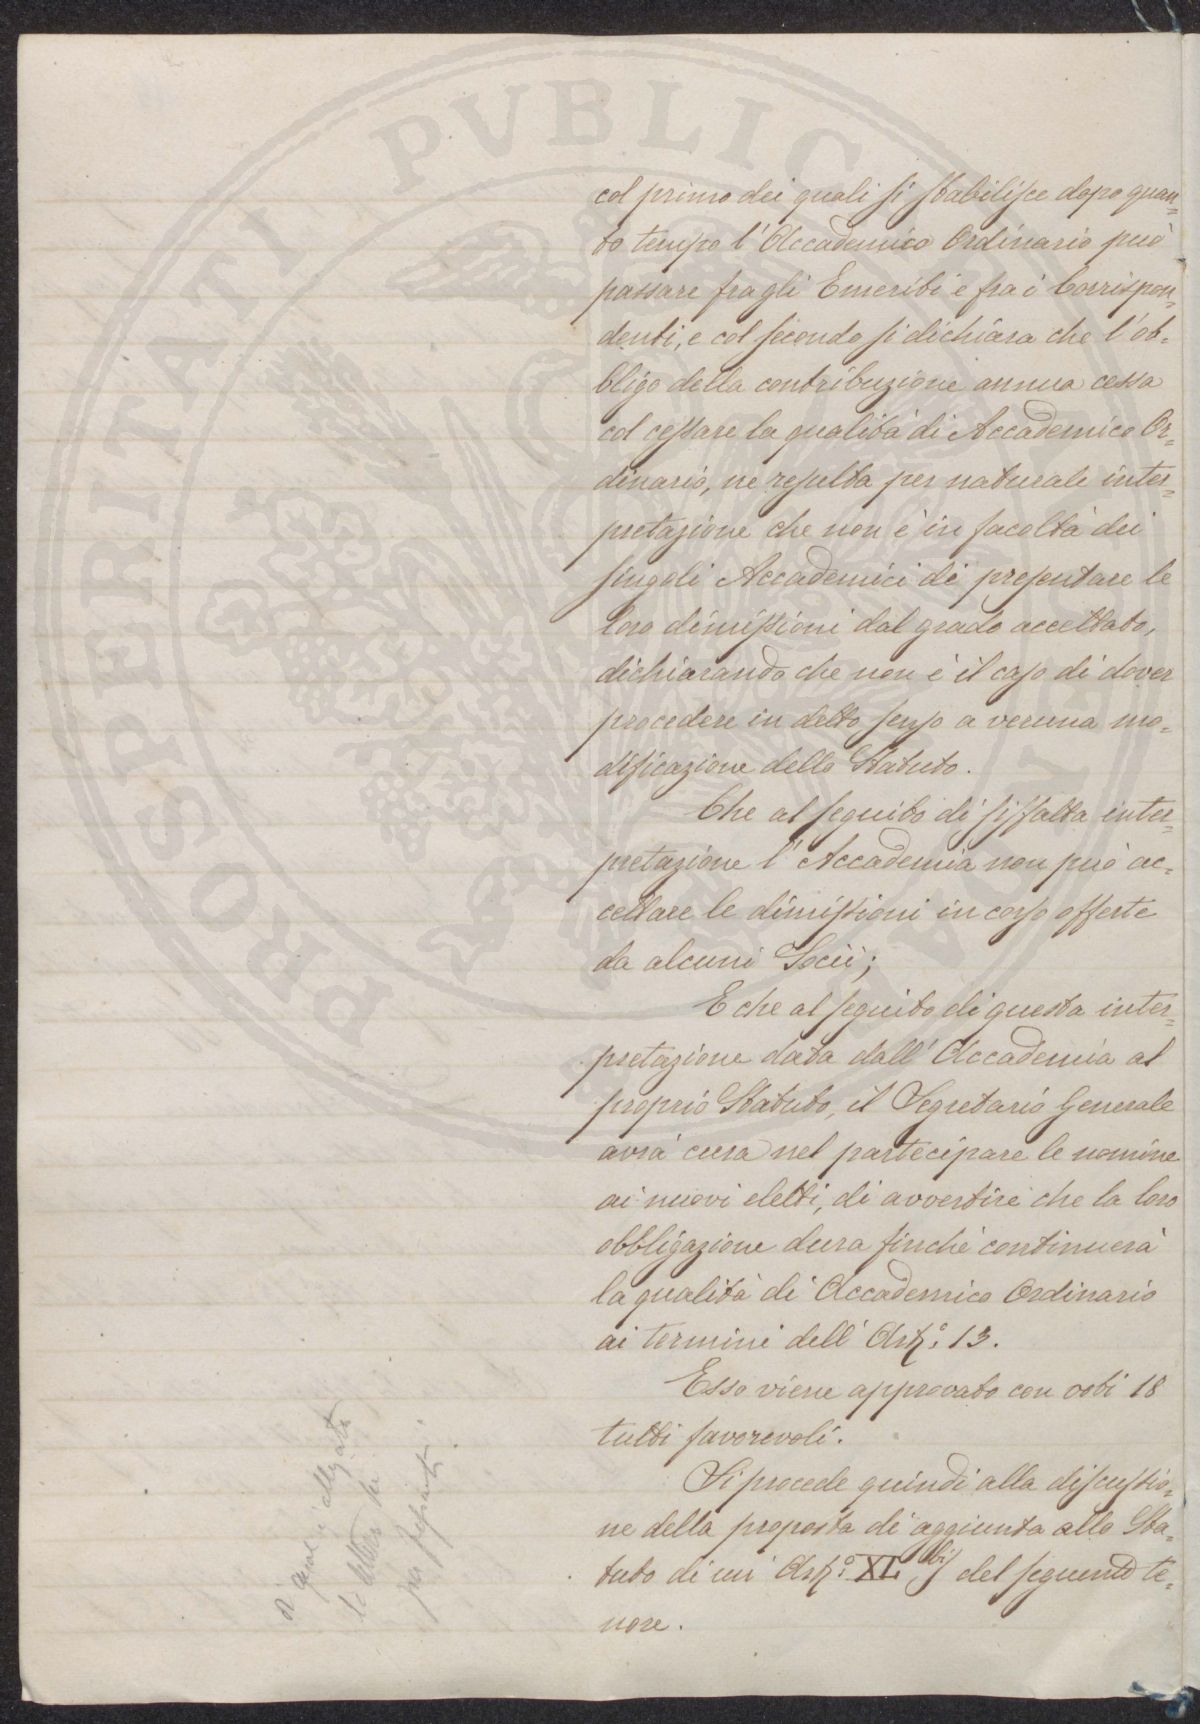 col primo dei quali si stabilisce dopo quan=
to tempo l'Accademico Ordinario può
passare fra gli Emeriti e fra i Corrispon=
denti, e col secondo si dichiara che l'ob=
bligo della contribuzione annua cessa
col cessare la qualità di Accademico Or=
dinario, ne resulta per naturale inter=
pretazione che non è in facoltà dei
singoli Accademici di presentare le
loro dimissioni dal grado accettato,
dichiarando che non è il caso di dover
procedere in detto senso a veruna mo=
dificazione dello Statuto.
Che al seguito di siffatta inter=
pretazione l'Accademia non può ac=
cettare le dimissioni in corso offerte
da alcuni Socii;
E che al seguito di questa inter=
pretazione data dall'Accademia al
proprio Statuto, il Segretario Generale
avrà cura nel partecipare le nomine
ai nuovi eletti, di avvertire che la loro
obbligazione dura finchè continuerà
la qualità di Accademico Ordinario
ai termini dell'Art.° 13.
Esso viene approvato con voti 18
tutti favorevoli.
Si procede quindi alla discussio=
ne della proposta di aggiunta allo Sta=
tuto di un Art.° XL bis del seguente te=
nore.
allegata
la lettera
PROSPERITATI PVBLIC